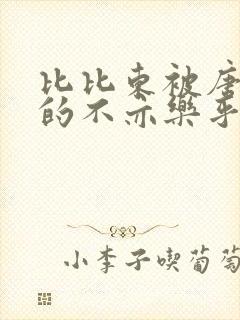 比比东被唐
的不亦樂乎
小李子喫葡萄